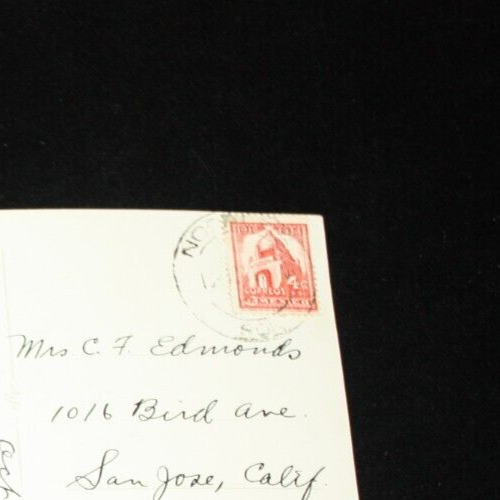 4¢
CORREOS
MEXICO
Mrs. C. F. Edmonds
1016 Bird Ave.
San Jose, Calif.